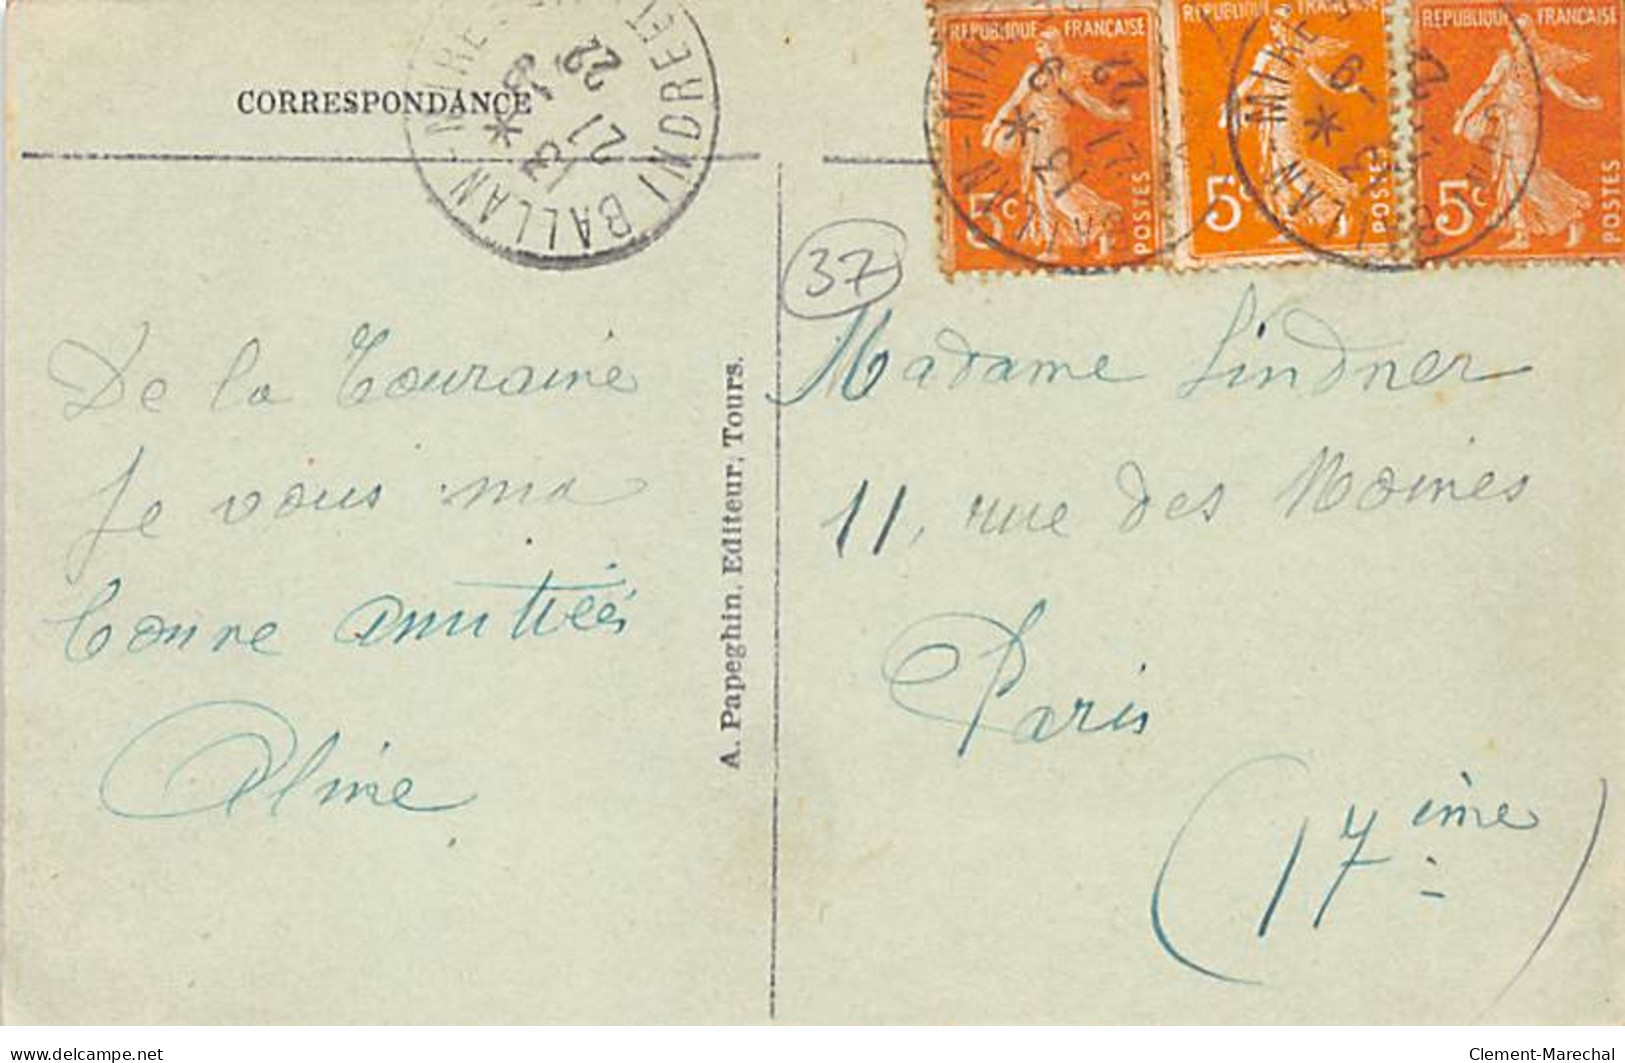 CORRESPONDANCE
BALLAN-MIRE
INDRE ET
13
21 -9
22
REPUBLIQUE FRANÇAISE
5c POSTES
REPUBLIQUE FRANÇAISE
5c POSTES
REPUBLIQUE FRANÇAISE
5c POSTES
37
De la Touraine
Je vous ma
bonne amitiés
Aline
A. Papeghin, Editeur, Tours.
Madame Lindner
11, rue des Moines
Paris
(17ème)
delcampe.net
Clement-Marechal